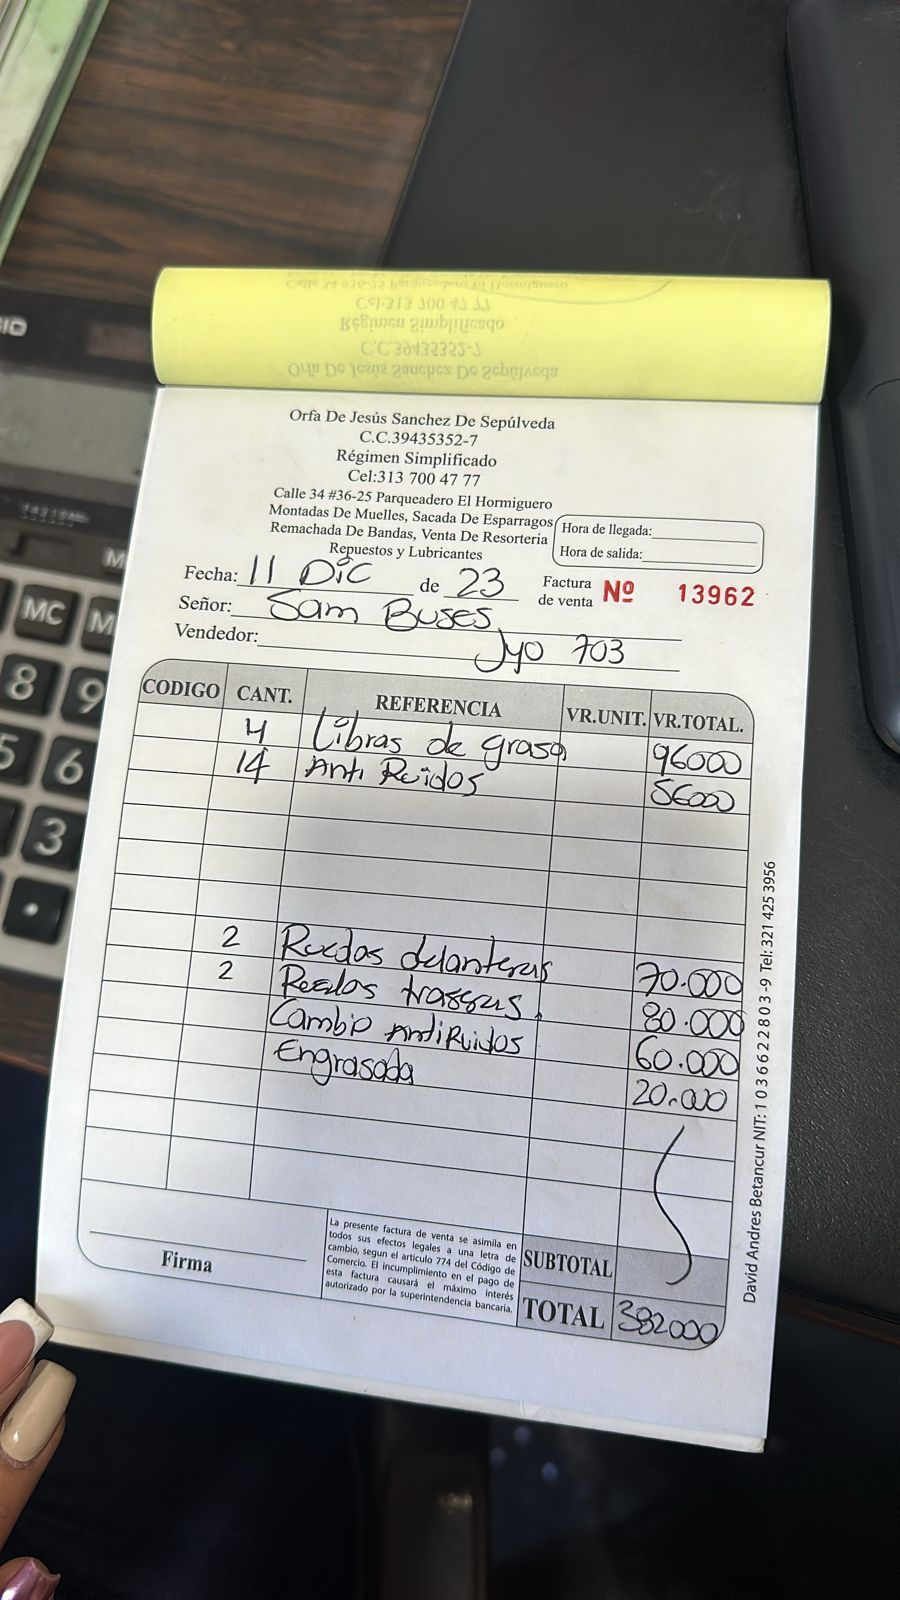 Orfa De Jesús Sanchez De Sepúlveda
C.C.39435352-7
Régimen Simplificado
Cel:313 700 47 77
Calle 34 #36-25 Parqueadero El Hormiguero
Montadas De Muelles, Sacada De Esparragos
Remachada De Bandas, Venta De Resorteria
Repuestos y Lubricantes
Hora de llegada:
Hora de salida:
Fecha: 11 Dic de 23 Factura de venta Nº 13962
Señor: Sam Buses
Vendedor: Jyo 703
CODIGO CANT. REFERENCIA VR.UNIT. VR.TOTAL.
4 Libras de grasa 96000
14 Anti Ruidos 56000
2 Ruedas delanteras 70.000
2 traseras 80.000
Cambio AntiRuidos 60.000
Engrasada 20.000
Firma
La presente factura de venta se asimila en
todos sus efectos legales a una letra de
cambio, segun el articulo 774 del Código de
Comercio. El incumplimiento en el pago de
esta factura causará el máximo interés
autorizado por la superintendencia bancaria.
SUBTOTAL
TOTAL 382000
David Andres Betancur NIT: 1 0 3 6 6 2 2 8 0 3 -9 Tel: 321 425 3956
MC
8 9
5 6
3